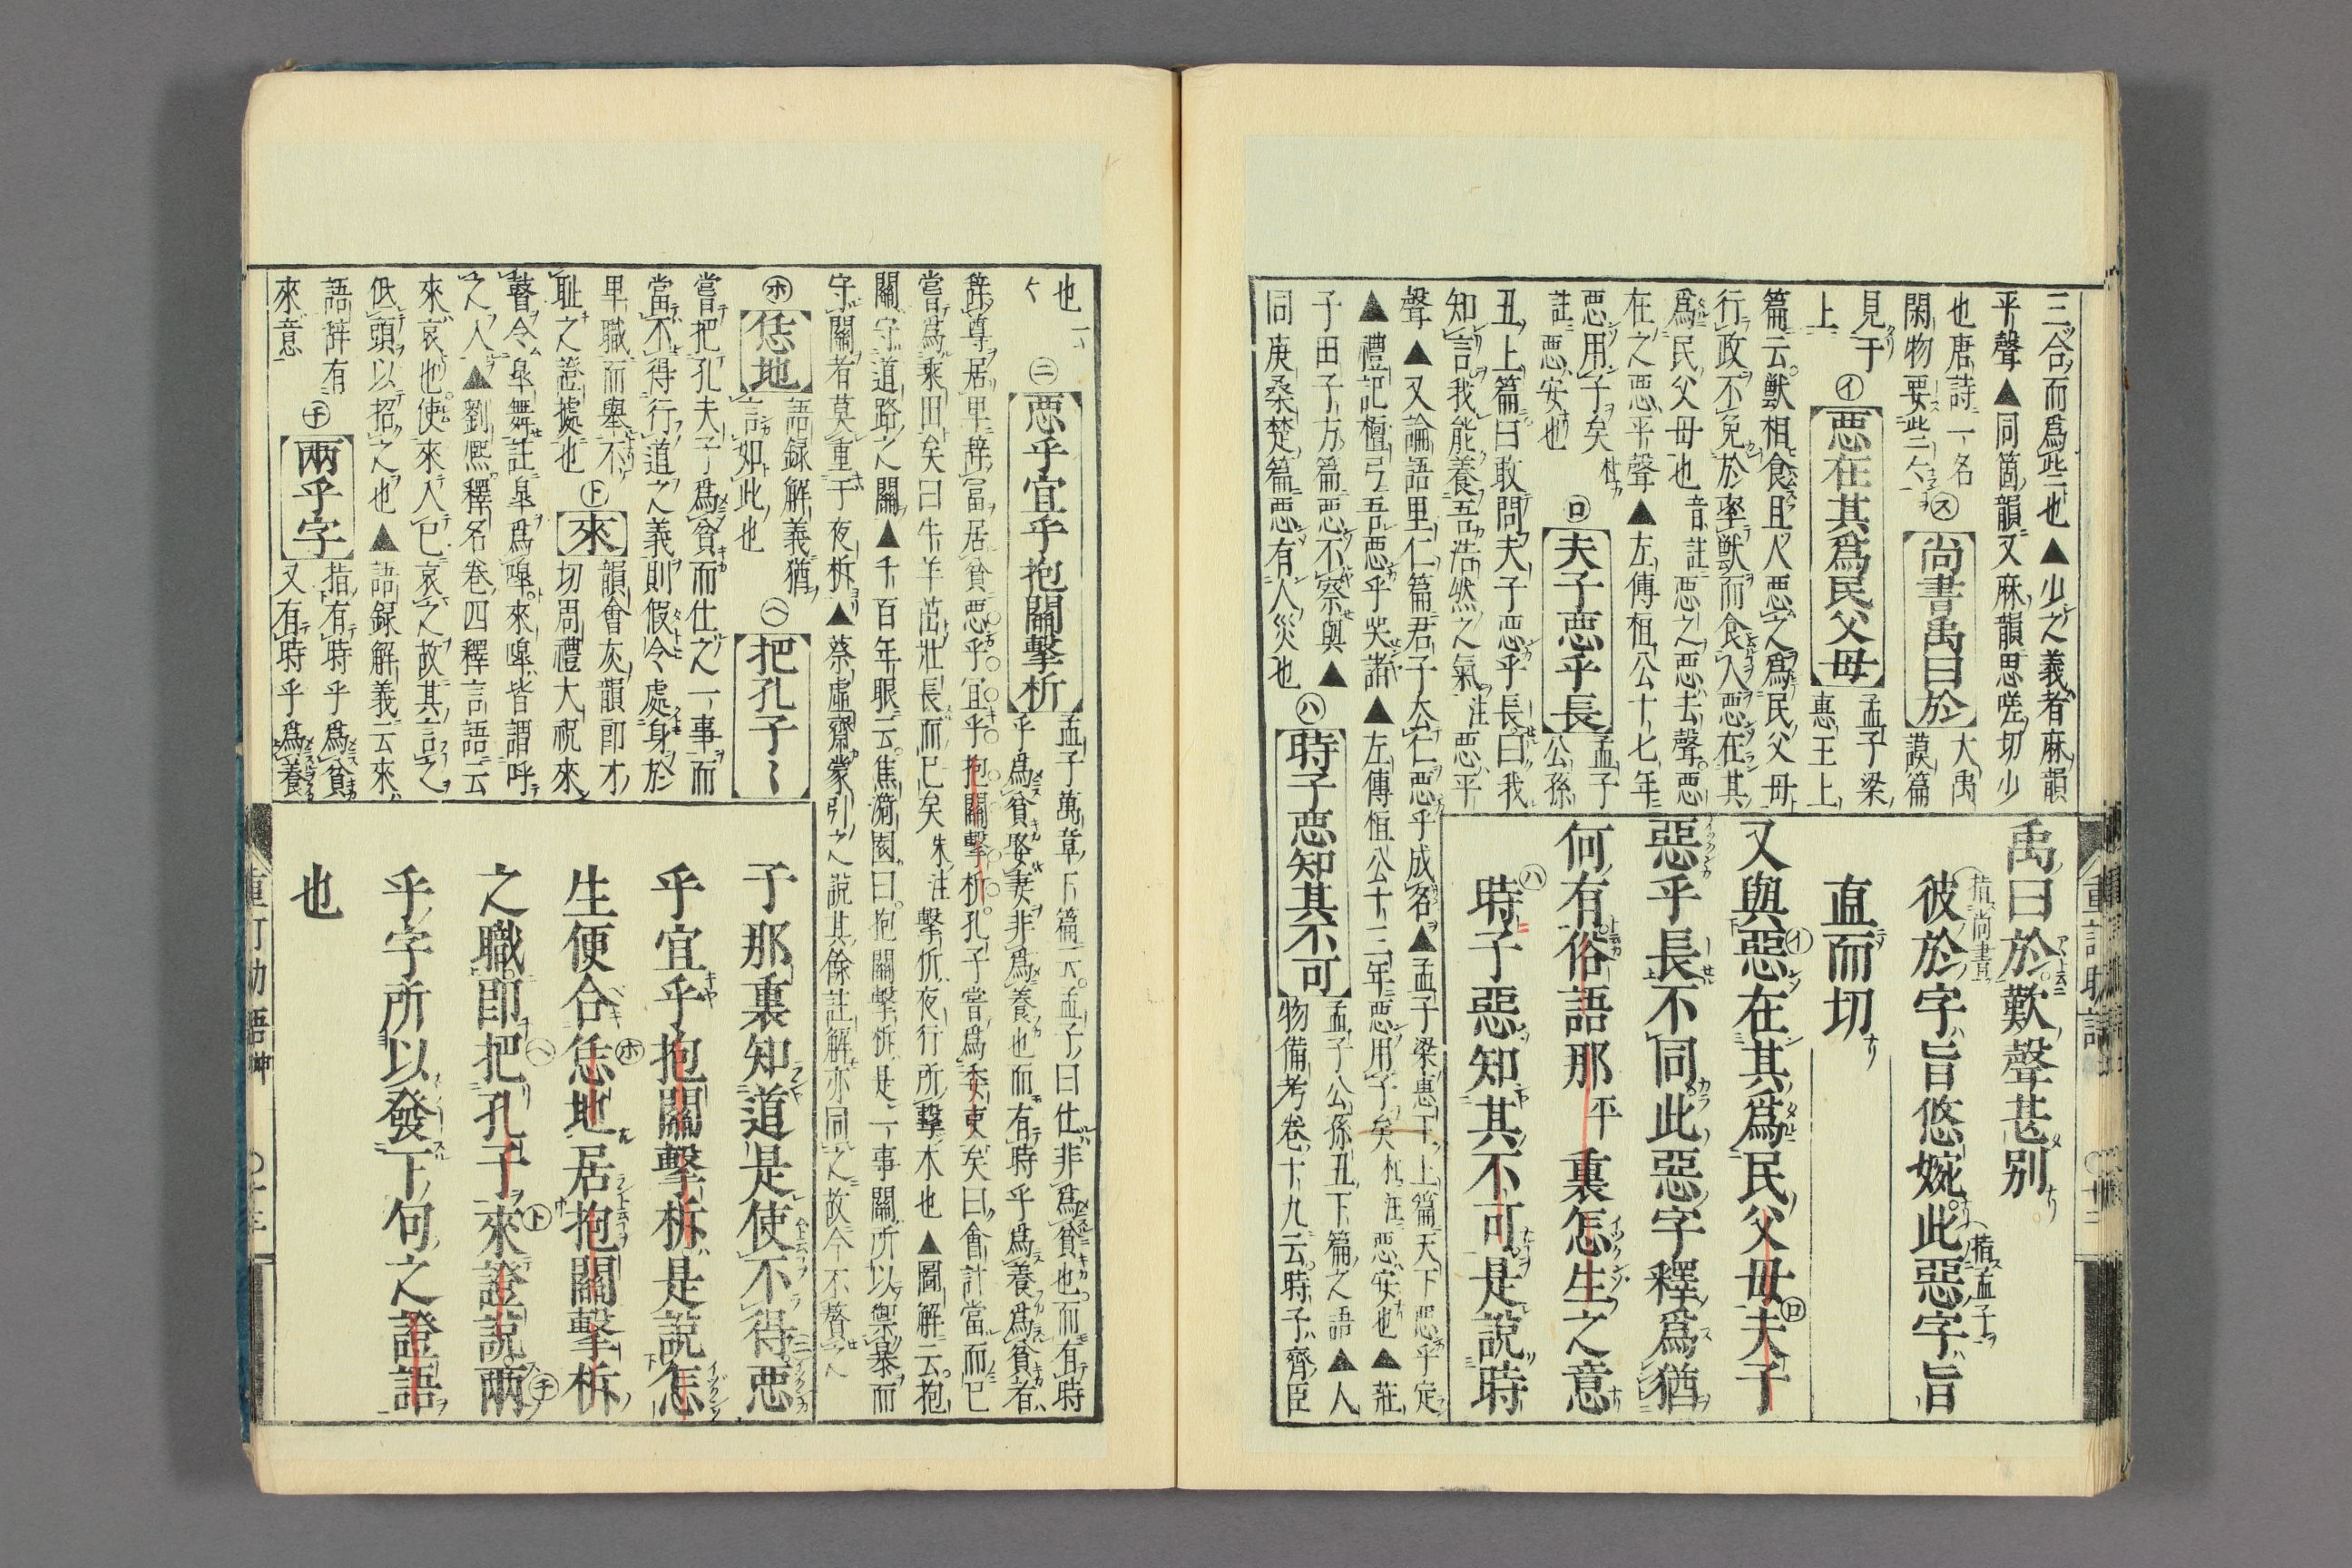 三合而爲些也▲少之義者麻韻
平聲▲同箇韻又麻韻思嗟切少
也唐詩一名㋜尚書禹曰於大禹
閑物要些々謨篇
見于㋑惡在其爲民父母孟子梁
上惠王上
篇云獸相食且人惡之爲民父母
行政不免於率獸而食人惡在其
爲民父母也音註惡之惡去聲惡
在之惡平聲▲左傳桓公十七年
惡用子矣杜
註惡安也㋺夫子惡乎長孟子
公孫
丑上篇曰敢問夫子惡乎長曰我
知言我能養吾浩然之氣注惡平
聲▲又論語里仁篇君子去仁惡乎成名▲孟子梁惠王上篇天下惡乎定
▲禮記檀弓吾惡乎哭諸▲左傳恒公十三年惡用子矣杜注惡安也▲莊
子田子方篇惡不察與▲
同庚桑楚篇惡有人災也㋩時子惡知其不可孟子公孫丑下篇之語▲人
物備考卷十九云時子齊臣
禹曰於歎聲甚别
彼於字旨悠婉此惡字旨
指尚書
指孟子
直而切
又與惡在其爲民父母夫子
惡乎長不同此惡字釋爲猶
何有俗語那平裏怎生之意
時子惡知其不可是説時
重訂助語
也㋥惡乎宜乎抱關擊柝孟子萬章下篇云孟子曰仕非爲貧也而有時
乎爲貧娶妻非爲養也而有時乎爲養爲貧者
辭尊居卑辭富居貧惡乎宜乎抱關擊柝孔子嘗爲委吏矣曰會計當而已
嘗爲乘田矣曰牛羊茁壯長而已矣朱注擊柝夜行所擊木也▲圖解云抱
關守道路之關▲千百年眼云焦漪園曰抱關擊柝是一事關所以禦暴而
守關者莫重于夜柝▲蔡虚齋蒙引之説其餘註解亦同之故今不贅之
㋭恁地語録解義猶
言如此也㋬把孔子〻
嘗把孔夫子爲貧而仕之一事而
當不得行道之義則假令處身於
卑職而舉不
耻之證據也㋣來韻會灰韻郎才
切周禮大祝來
瞽令皐舞註皐爲嘷來嘷皆謂呼
之人▲劉熙釋名卷四釋言語云
來哀也使來入已哀之故其言之
低頭以招之也▲語録解義云來
語辭有
來意㋠兩乎字指有時乎爲貧
又有時乎爲養
子那裏知道是使不得惡
乎宜乎抱關擊柝是説怎
生便合恁地居抱關擊柝
之職即把孔子來證説兩
乎字所以發下句之證語
也
重訂助語